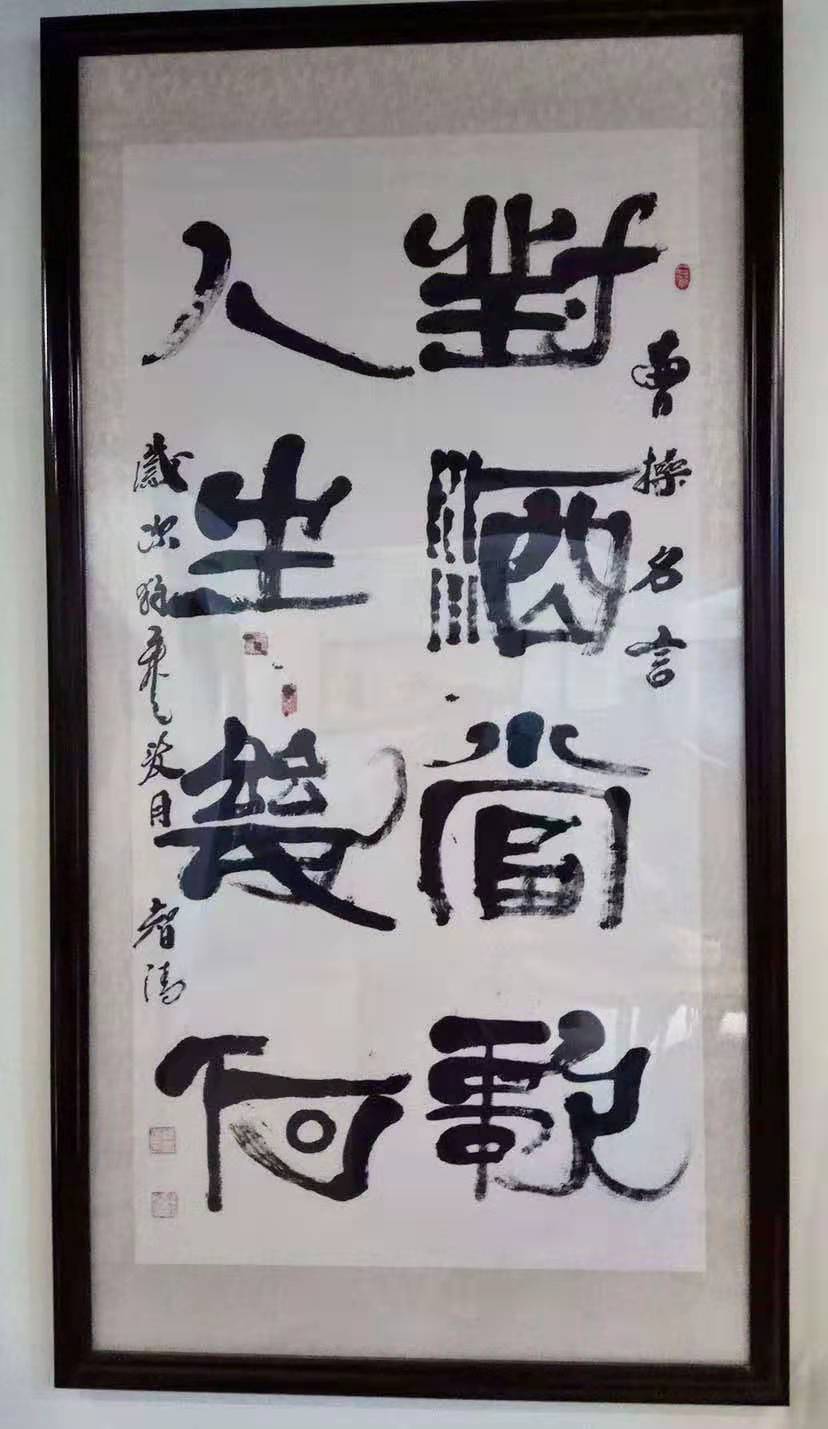 曹操名言
對酒當歌
人生幾何
歲次
月
智濤